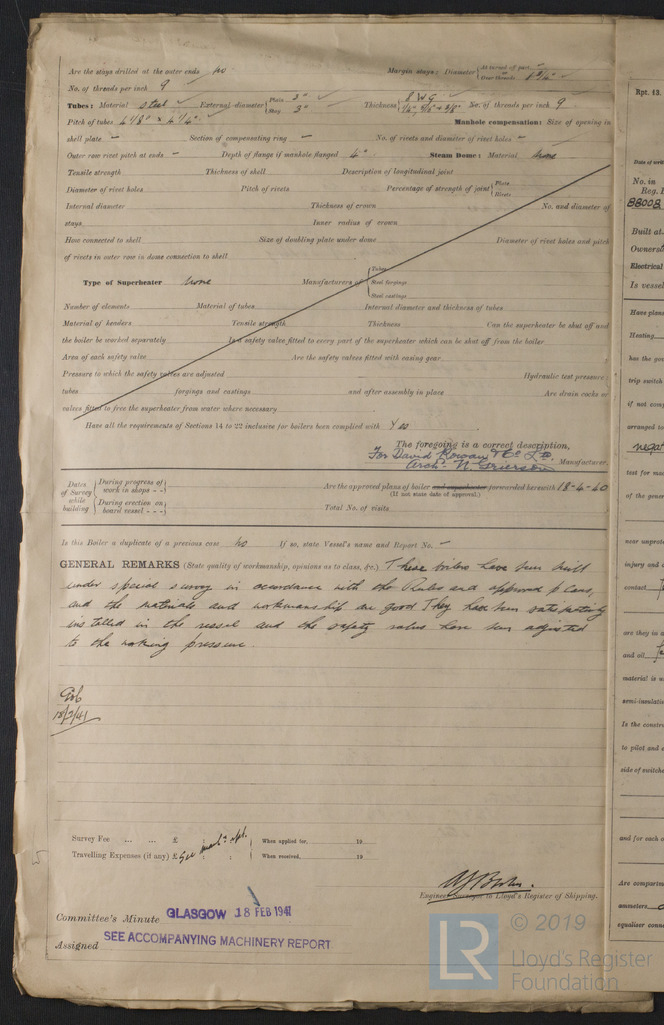 Are the stays drilled at the outer ends No Margin stays: Diameter { At turned off part, – Over threads 1 3/4"
No. of threads per inch 9
Tubes: Material Steel External diameter { Plain 3" Stay 3" Thickness { 8 WG No. of threads per inch 9
Pitch of tubes Manhole compensation: Size of opening in
shell plate – Section of compensating ring – No. of rivets and diameter of rivet holes –
Outer row rivet pitch at ends – Depth of flange if manhole flanged 4" Steam Dome: Material None
Tensile strength Thickness of shell Description of longitudinal joint
Diameter of rivet holes Pitch of rivets Percentage of strength of joint { Plate Rivets
Internal diameter Thickness of crown No. and diameter of
stays Inner radius of crown
How connected to shell Size of doubling plate under dome Diameter of rivet holes and pitch
of rivets in outer row in dome connection to shell
Type of Superheater None Manufacturers of { Tubes Steel forgings Steel castings
Number of elements Material of tubes Internal diameter and thickness of tubes
Material of headers Tensile strength Thickness Can the superheater be shut off and
the boiler be worked separately Is a safety valve fitted to every part of the superheater which can be shut off from the boiler
Area of each safety valve Are the safety valves fitted with easing gear
Pressure to which the safety valves are adjusted Hydraulic test pressure:
tubes forgings and castings and after assembly in place Are drain cocks or
valves fitted to free the superheater from water where necessary
Have all the requirements of Sections 14 to 22 inclusive for boilers been complied with Yes
The foregoing is a correct description,
For David Rowan & Co Ltd.
Arch. N. Grierson Manufacturer.
Dates of Survey while building { During progress of work in shops - - Are the approved plans of boiler and superheater forwarded herewith 18-4-40
(If not state date of approval.)
{ During erection on board vessel - - - Total No. of visits
Is this Boiler a duplicate of a previous case No If so, state Vessel's name and Report No. –
GENERAL REMARKS (State quality of workmanship, opinions as to class, &c.) These boilers have been built
under special survey in accordance with the Rules and approved plans,
and the materials and workmanship are good They have been satisfactorily
installed in the vessel and the safety valves have been adjusted
to the working pressure.
18/2/41
Survey Fee ... ... £ : : When applied for, 19
Travelling Expenses (if any) £ See mach. rpt. : : When received, 19
Engineer Surveyor to Lloyd's Register of Shipping.
Committee's Minute GLASGOW 18 FEB 1941
Assigned SEE ACCOMPANYING MACHINERY REPORT
Rpt. 13.
Date of writ
No. in
Reg. B
88008
Built at
Owners
Electrical
Is vessel
Have plans
Heating
has the gov
trip switch
if not comp
arranged to
negat
test for mac
of the gener
near unprote
injury and o
contact
are they in a
and oil
material is u
semi-insulatin
Is the constru
to pilot and e
side of switche
and for each o
Are compartm
ammeters
equaliser conne
LR © 2019
Lloyd's Register
Foundation